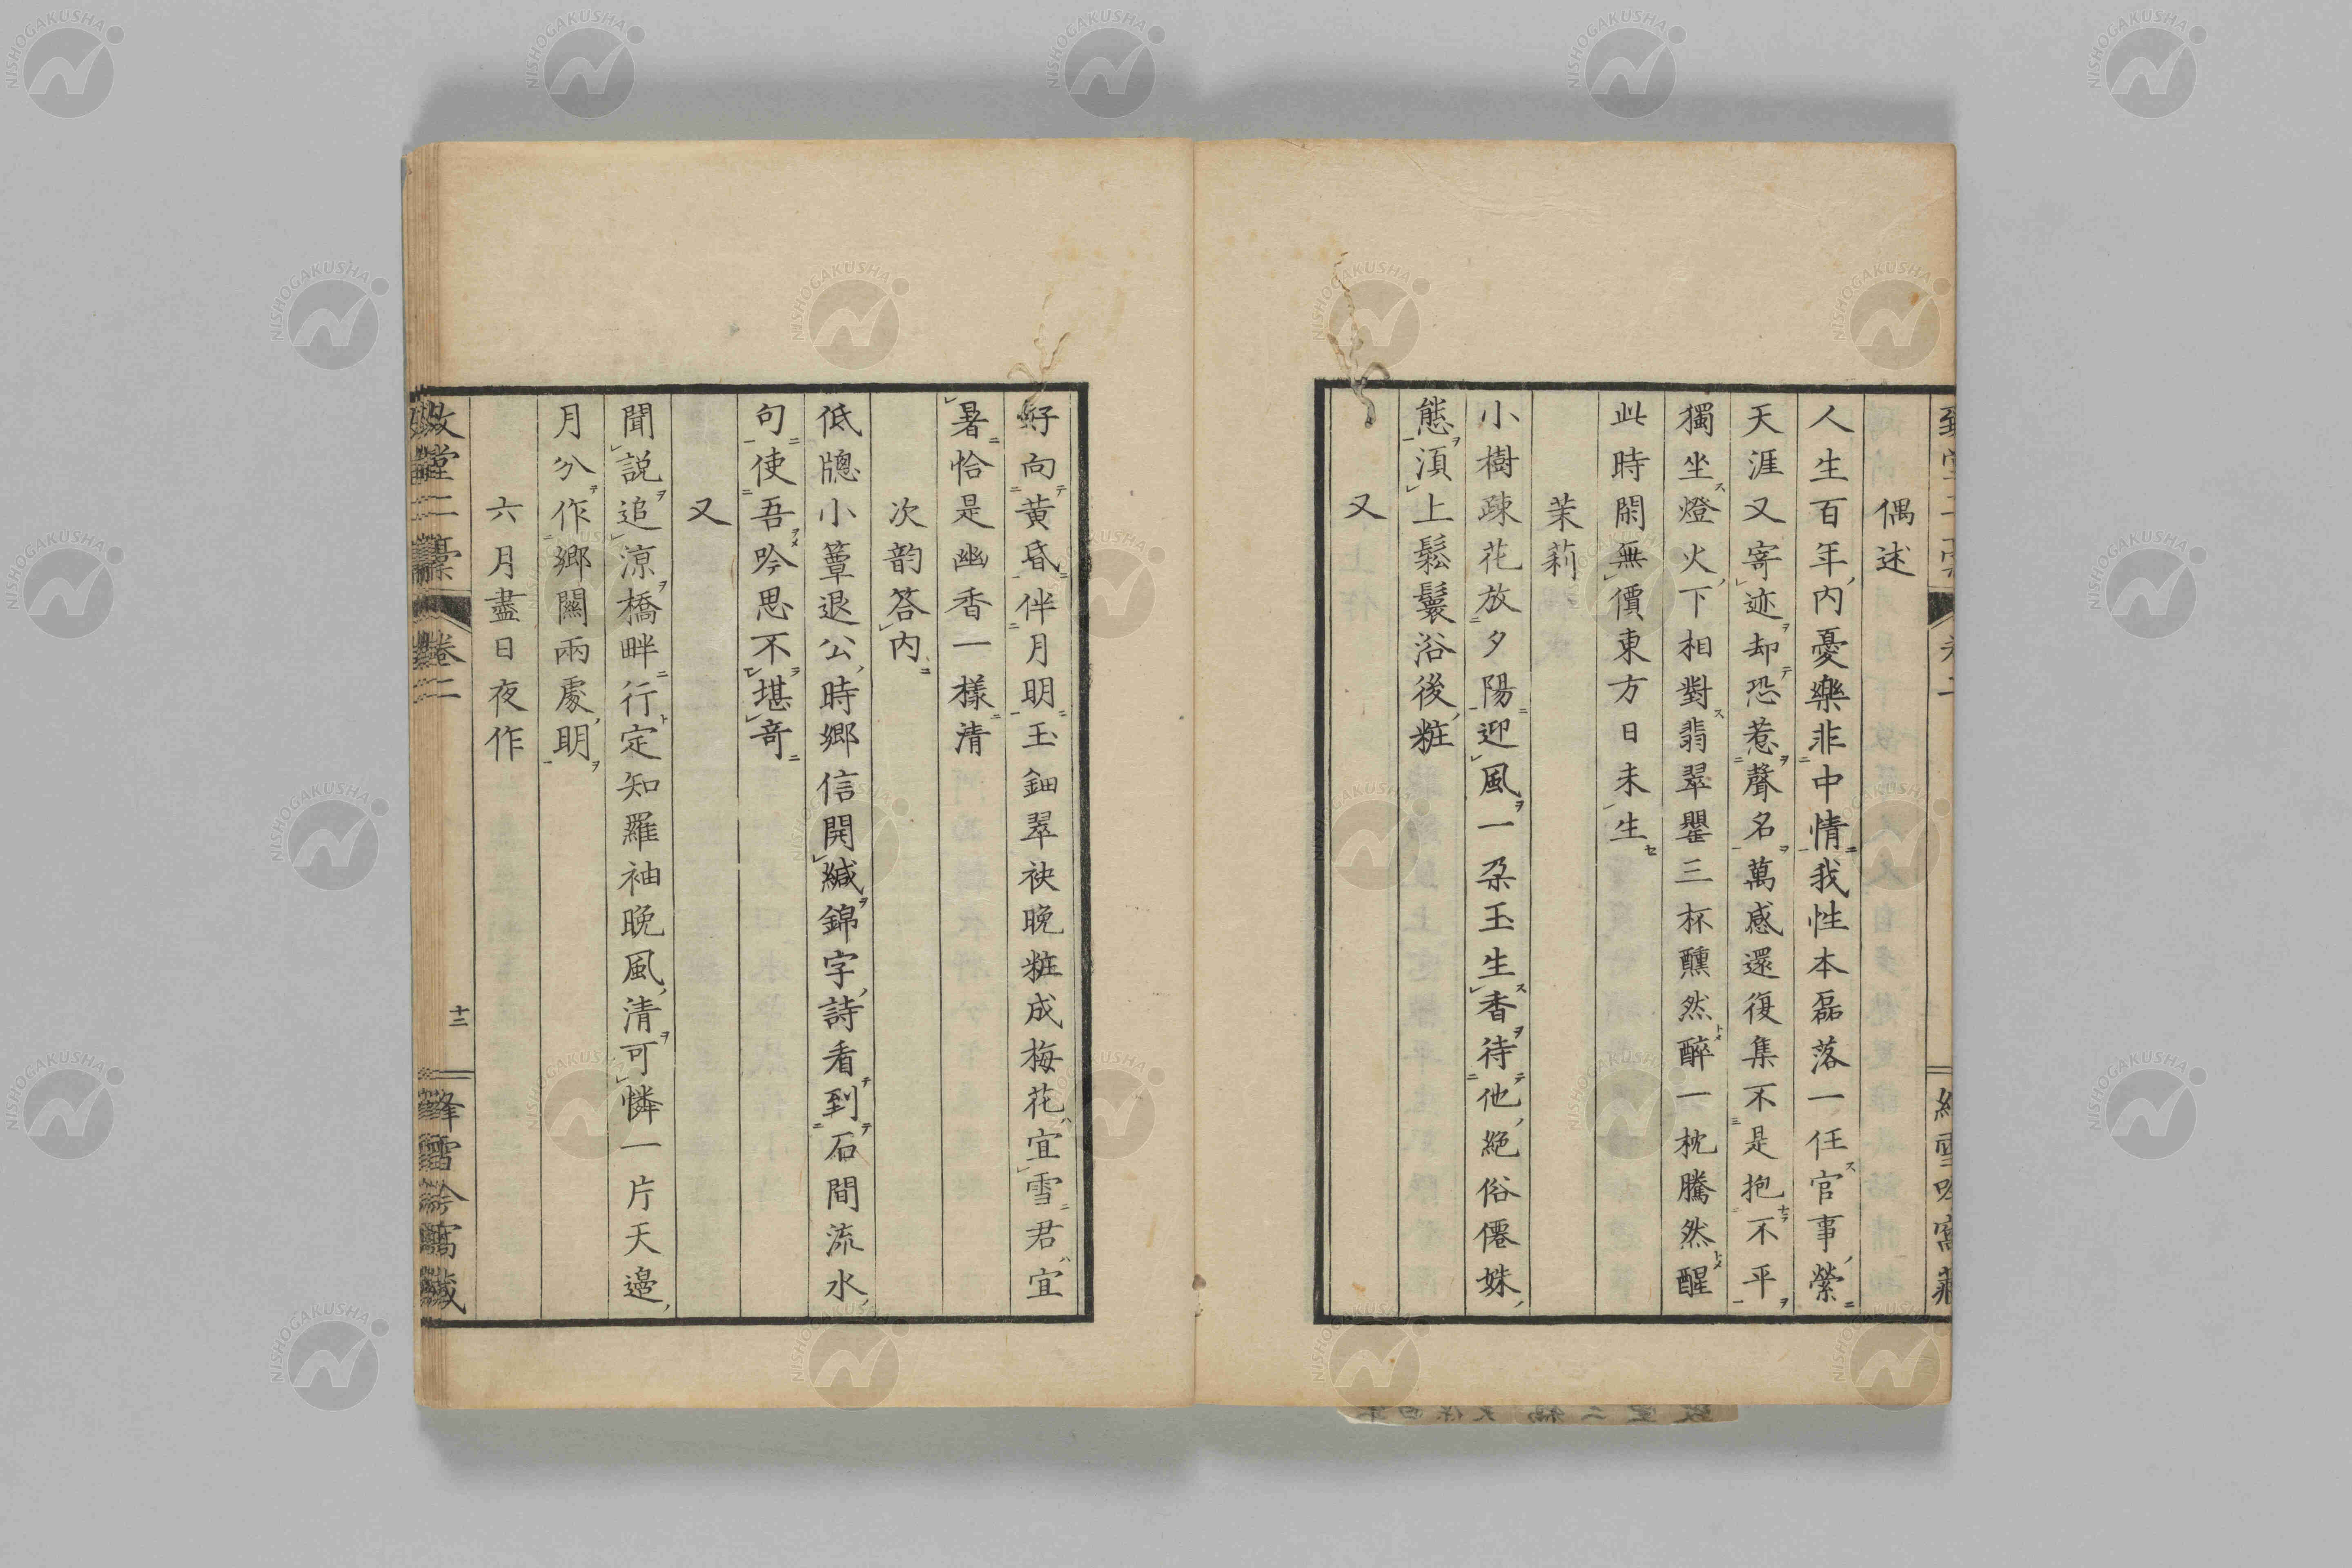 偶述
人生百年內憂樂非中情我性本磊落一任官事縈
天涯又寄迹却恐惹聲名萬感還復集不是抱不平
獨坐燈火下相對翡翠罌三杯醺然醉一枕騰然醒
此時閑無價東方日未生
茉莉
小樹疎花放夕陽迎風一朶玉生香待他絕俗僊姝
態湏上鬆鬟浴後粧
又
好向黃昏伴月明玉鈿翠袂晚粧成梅花宜雪君宜
暑恰是幽香一樣清
次韵答內
低牕小簟退公時鄉信開緘錦字詩看到石間流水
句使吾吟思不堪奇
又
聞說追涼橋畔行定知羅袖晚風清可憐一片天邊
月分作鄉關兩處明
六月盡日夜作
卷二
十三
NISHOGAKUSHA